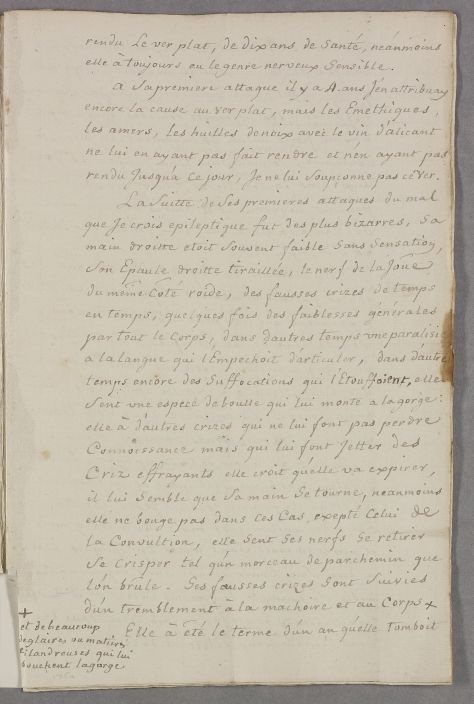 rendu Le ver plat, de dix ans de Santé, neánmoins
elle à toujours eu le genre nerveux Sensible.
a Sa premiere attaque il y a 4. ans J'en attribuay
encore la cause au ver plat, mais les Emethiques,
les amers, les huilles de noix avec le vin d'alicant
ne lui en ayant pas fait rendre et n'en ayant pas
rendu Jusqu'à ce jour, Je ne lui Soupçonne pas ce ver.
La Suitte de Ses premieres attaques du mal
que Je crois epileptique fut des plus bizarres, Sa
main droitte etoit Souvent faible Sans Sensation,
Son Epaule droitte tiraillée, le nerf de la Joue
du même Coté roide, des fausses crizes de temps
en temps, quelques fois des faiblesses générales
par tout le Corps, dans d'autres temps une paralisie
a la langue qui l'Empechoit d'articuler, dans d'autre
temps encore des Suffocations qui l'Etouffoient, elle
Sent une espece de boulle qui lui monte a la gorge:
elle à d'autres crizes qui ne lui font pas perdre
Connoissance mais qui lui font Jetter des
Criz effrayants elle croit qu'elle va expirer,
il lui Semble que Sa main Se tourne, neanmoins
elle ne bouge pas dans ces Cas, exepté Celui de
la Convultion, elle Sent Ses nerfs Se retirer
Se crisper tel qu'un morceau de parchemin que
l'on brule. Ses fausses crizes Sont Suivies
d'un tremblement à la machoire et au Corps +
Elle à eté le terme d'un an qu'elle Tomboit
+
et de beaucoup
de glaires ou matiere
filandreuses qui lui
bouchent la gorge